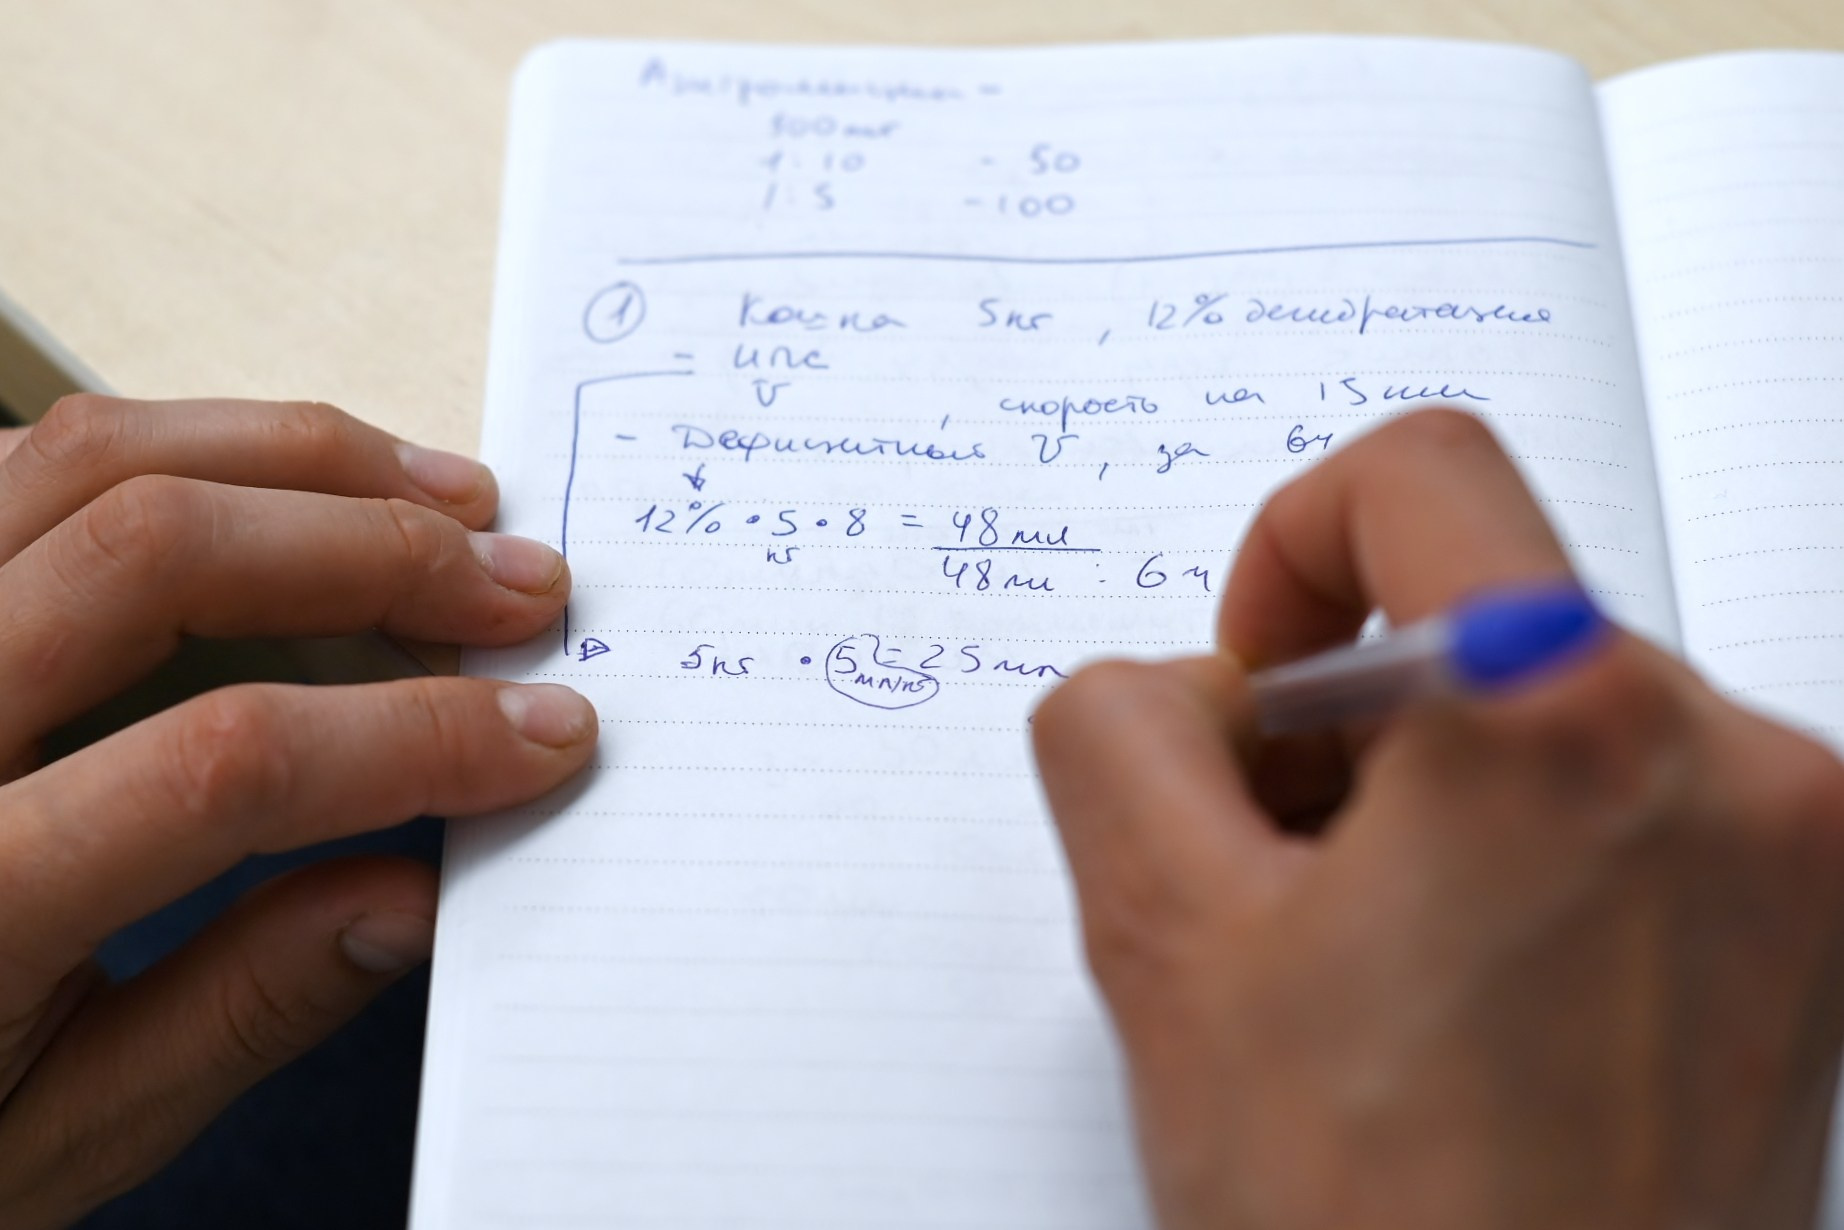 500 мг
1:10 - 50
1:5 - 100
1 Кошка 5 кг, 12% дегидратация
- ИПС
V, скорость на 15 мин
- Дефицитный V, за 6ч
12% • 5 • 8 = 48 мл
кг
48 мл : 6 ч
5 кг • 5 = 25 мл
мл/кг